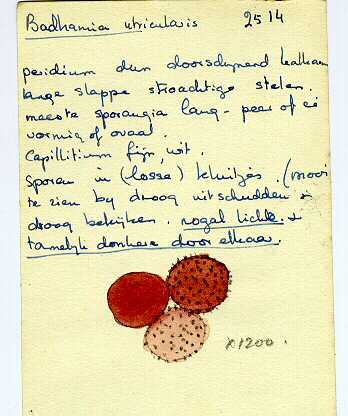 Badhamia utricularis 2514
peridium dun doorschynend kalkarm
lange slappe strooachtige stelen.
meeste sporangia lang-peer of ei
vormig of ovaal.
Capillitium fijn, wit.
Sporen in (losse) kluitjes. (mooi
te zien by droog uitschudden +
droog bekijken. nogal lichte +
tamelijk donkere door elkaar.
x1200.